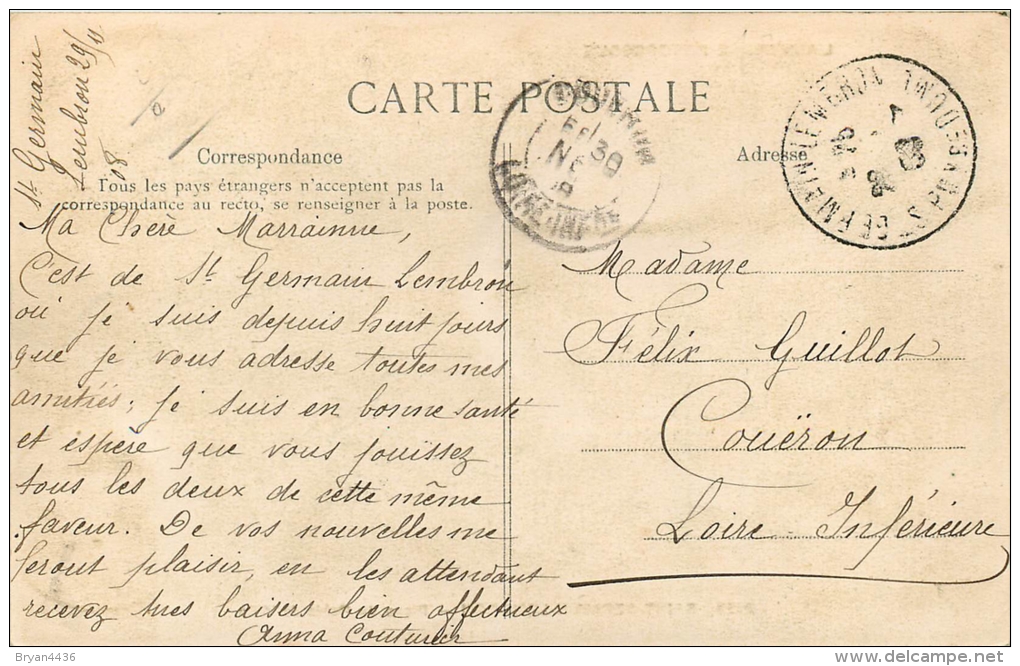 St Germain
Lembron 29/11
08
CARTE POSTALE
Correspondance
Adresse
Tous les pays étrangers n'acceptent pas la
correspondance au recto, se renseigner à la poste.
Ma Chère Marrainne,
C'est de St Germain Lembron
où je suis depuis huit jours
que je vous adresse toutes mes
amitiés; je suis en bonne santé
et espère que vous jouissez
tous les deux de cette même
faveur. De vos nouvelles me
feront plaisir, en les attendant
recevez mes baisers bien affectueux
Anna Couturier
Madame
Félix Guillot
Couëron
Loire Inférieure
PUY-DE-DOME
LOIRE-INFRE
© Bryan4436
http://www.delcampe.net